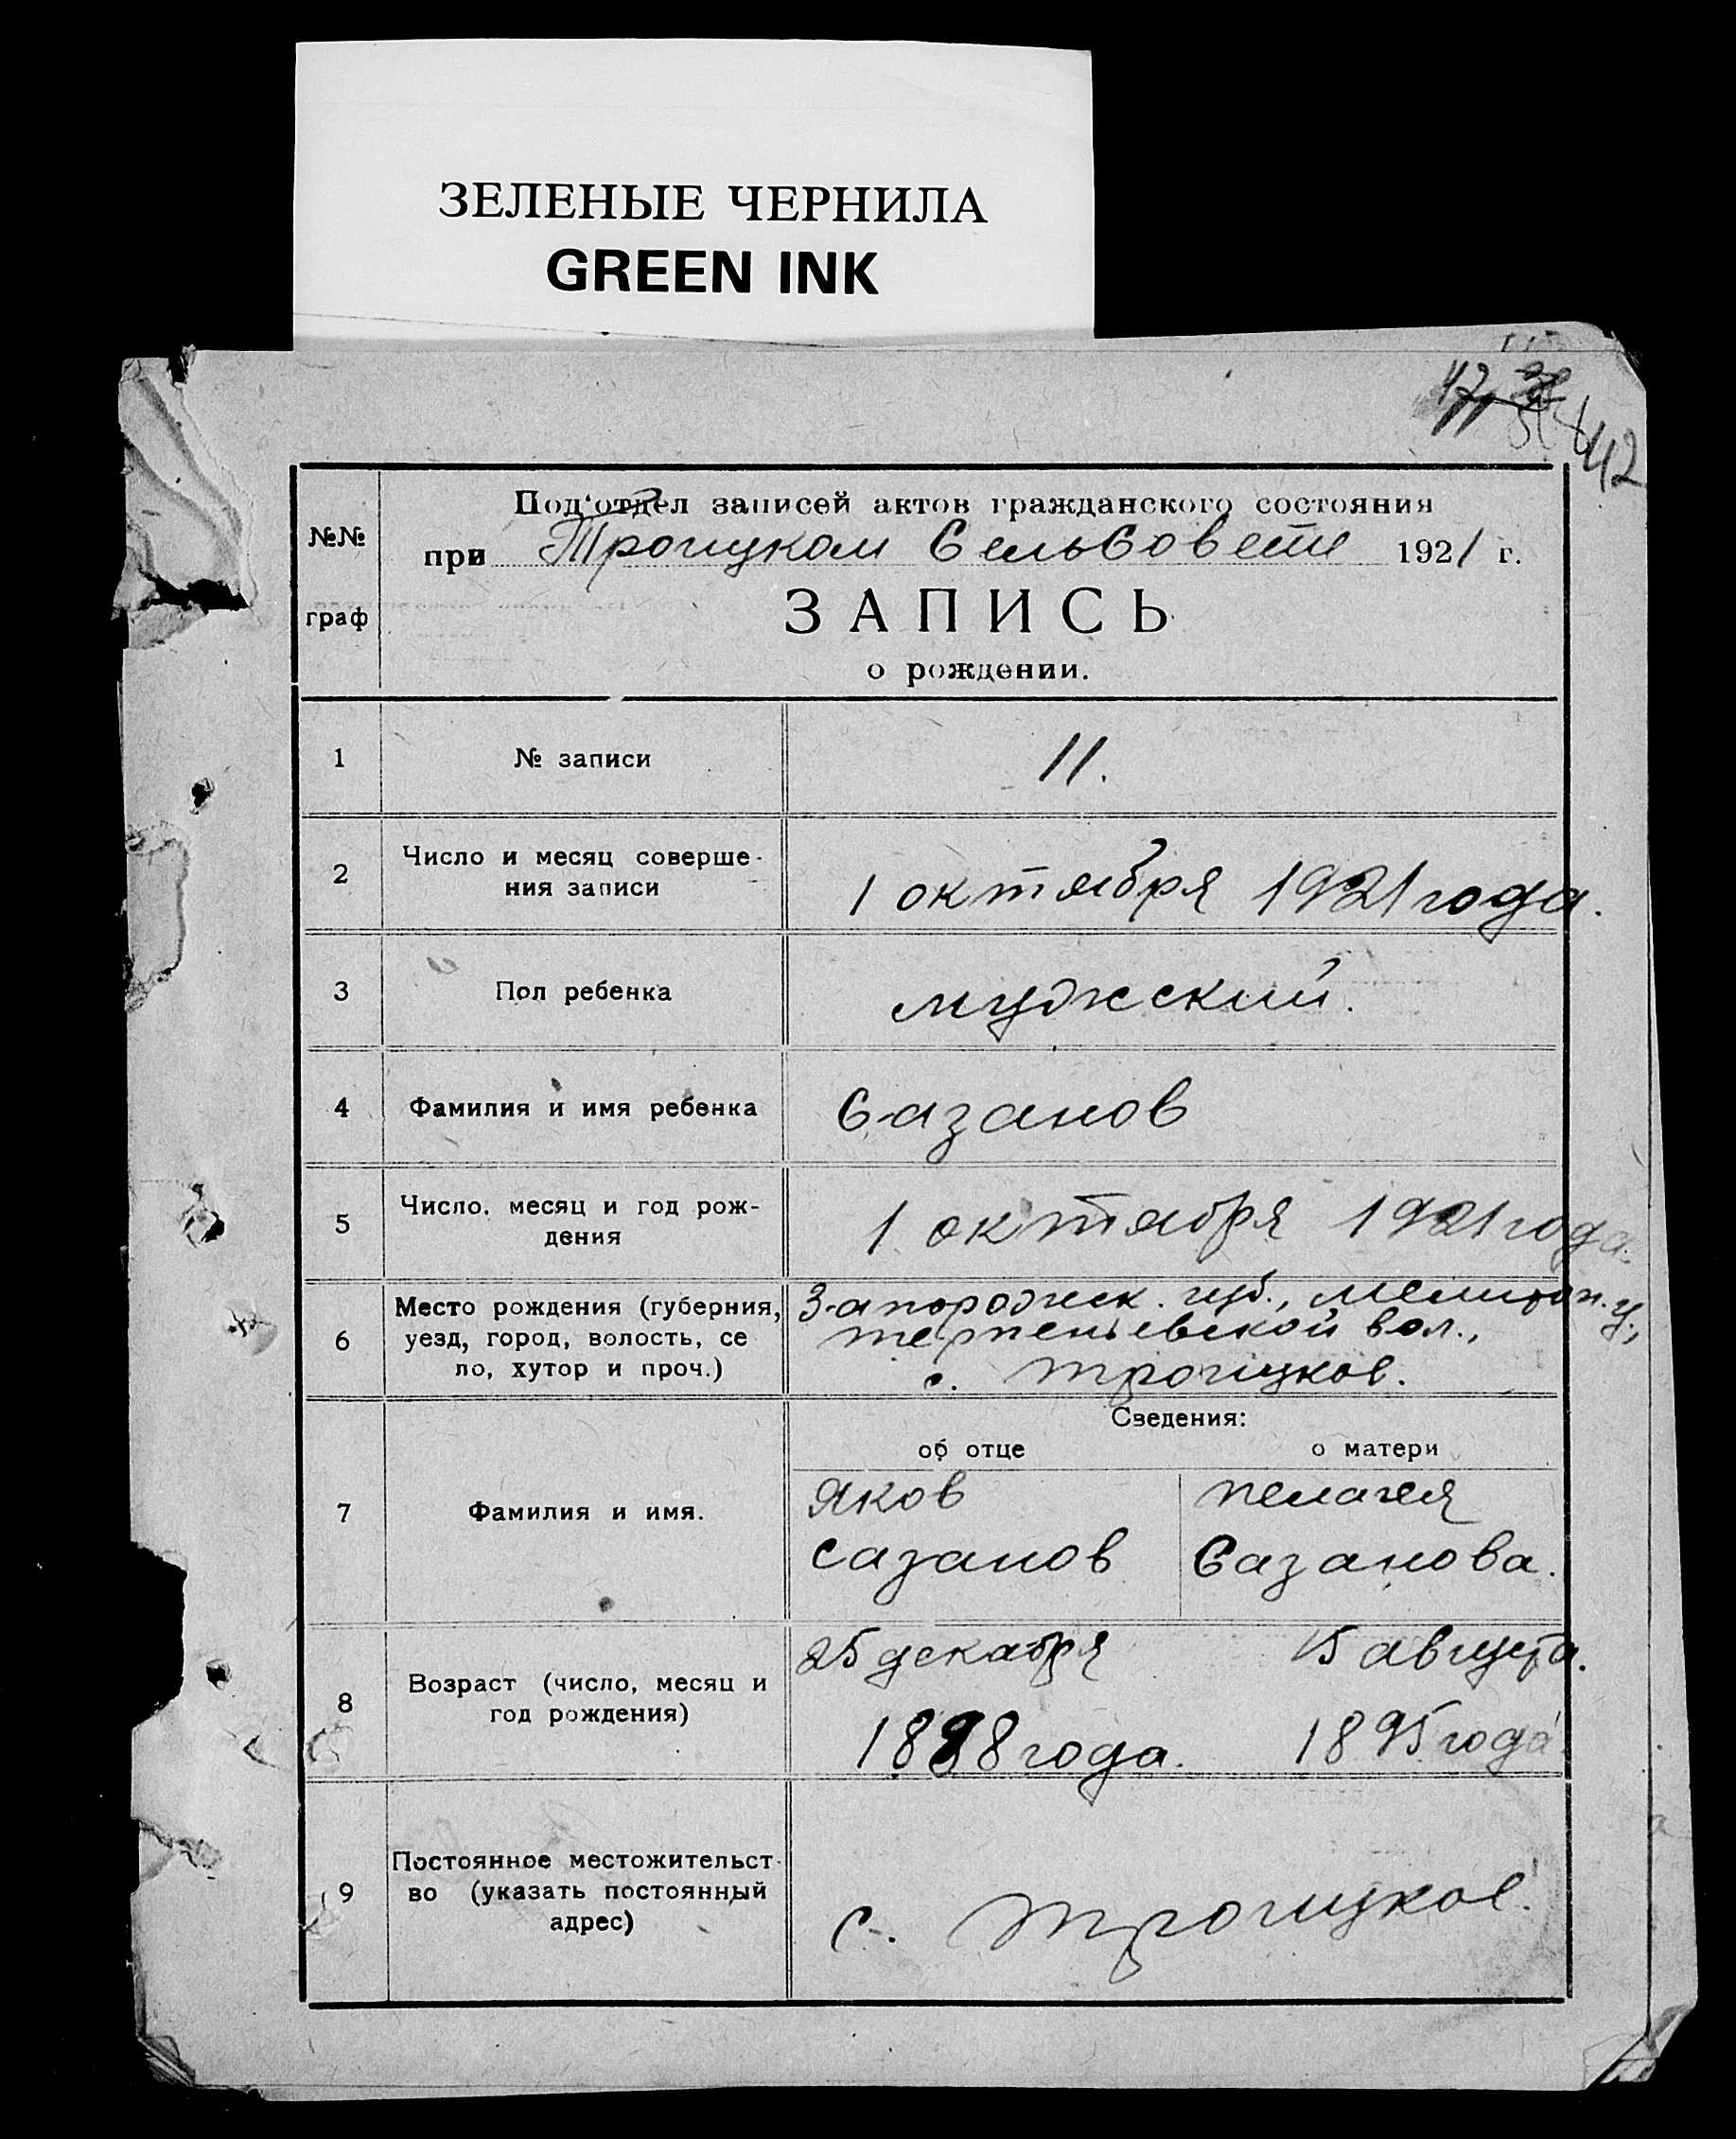 ЗЕЛЕНЫЕ ЧЕРНИЛА
GREEN INK
42
№№
граф
Под'отдел записей актов гражданского состояния
при Троицком Сельсовете 1921 г.
ЗАПИСЬ
о рождении.
1
№ записи
11.
2
Число и месяц соверше-
ния записи
1 октября 1921 года.
3
Пол ребенка
мужский.
4
Фамилия и имя ребенка
Сазанов
5
Число, месяц и год рож-
дения
1 октября 1921 года.
6
Место рождения (губерния,
уезд, город, волость, се
ло, хутор и проч.)
Запорожск. губ., Мелитоп. у.,
Терпеньевской вол.,
с. Троицкое.
Сведения:
об отце
о матери
7
Фамилия и имя.
Яков
Сазанов
Пелагея
Сазанова.
8
Возраст (число, месяц и
год рождения)
25 декабря
1898 года.
15 августа.
1895 года
9
Постоянное местожительст-
во (указать постоянный
адрес)
с. Троицкое.